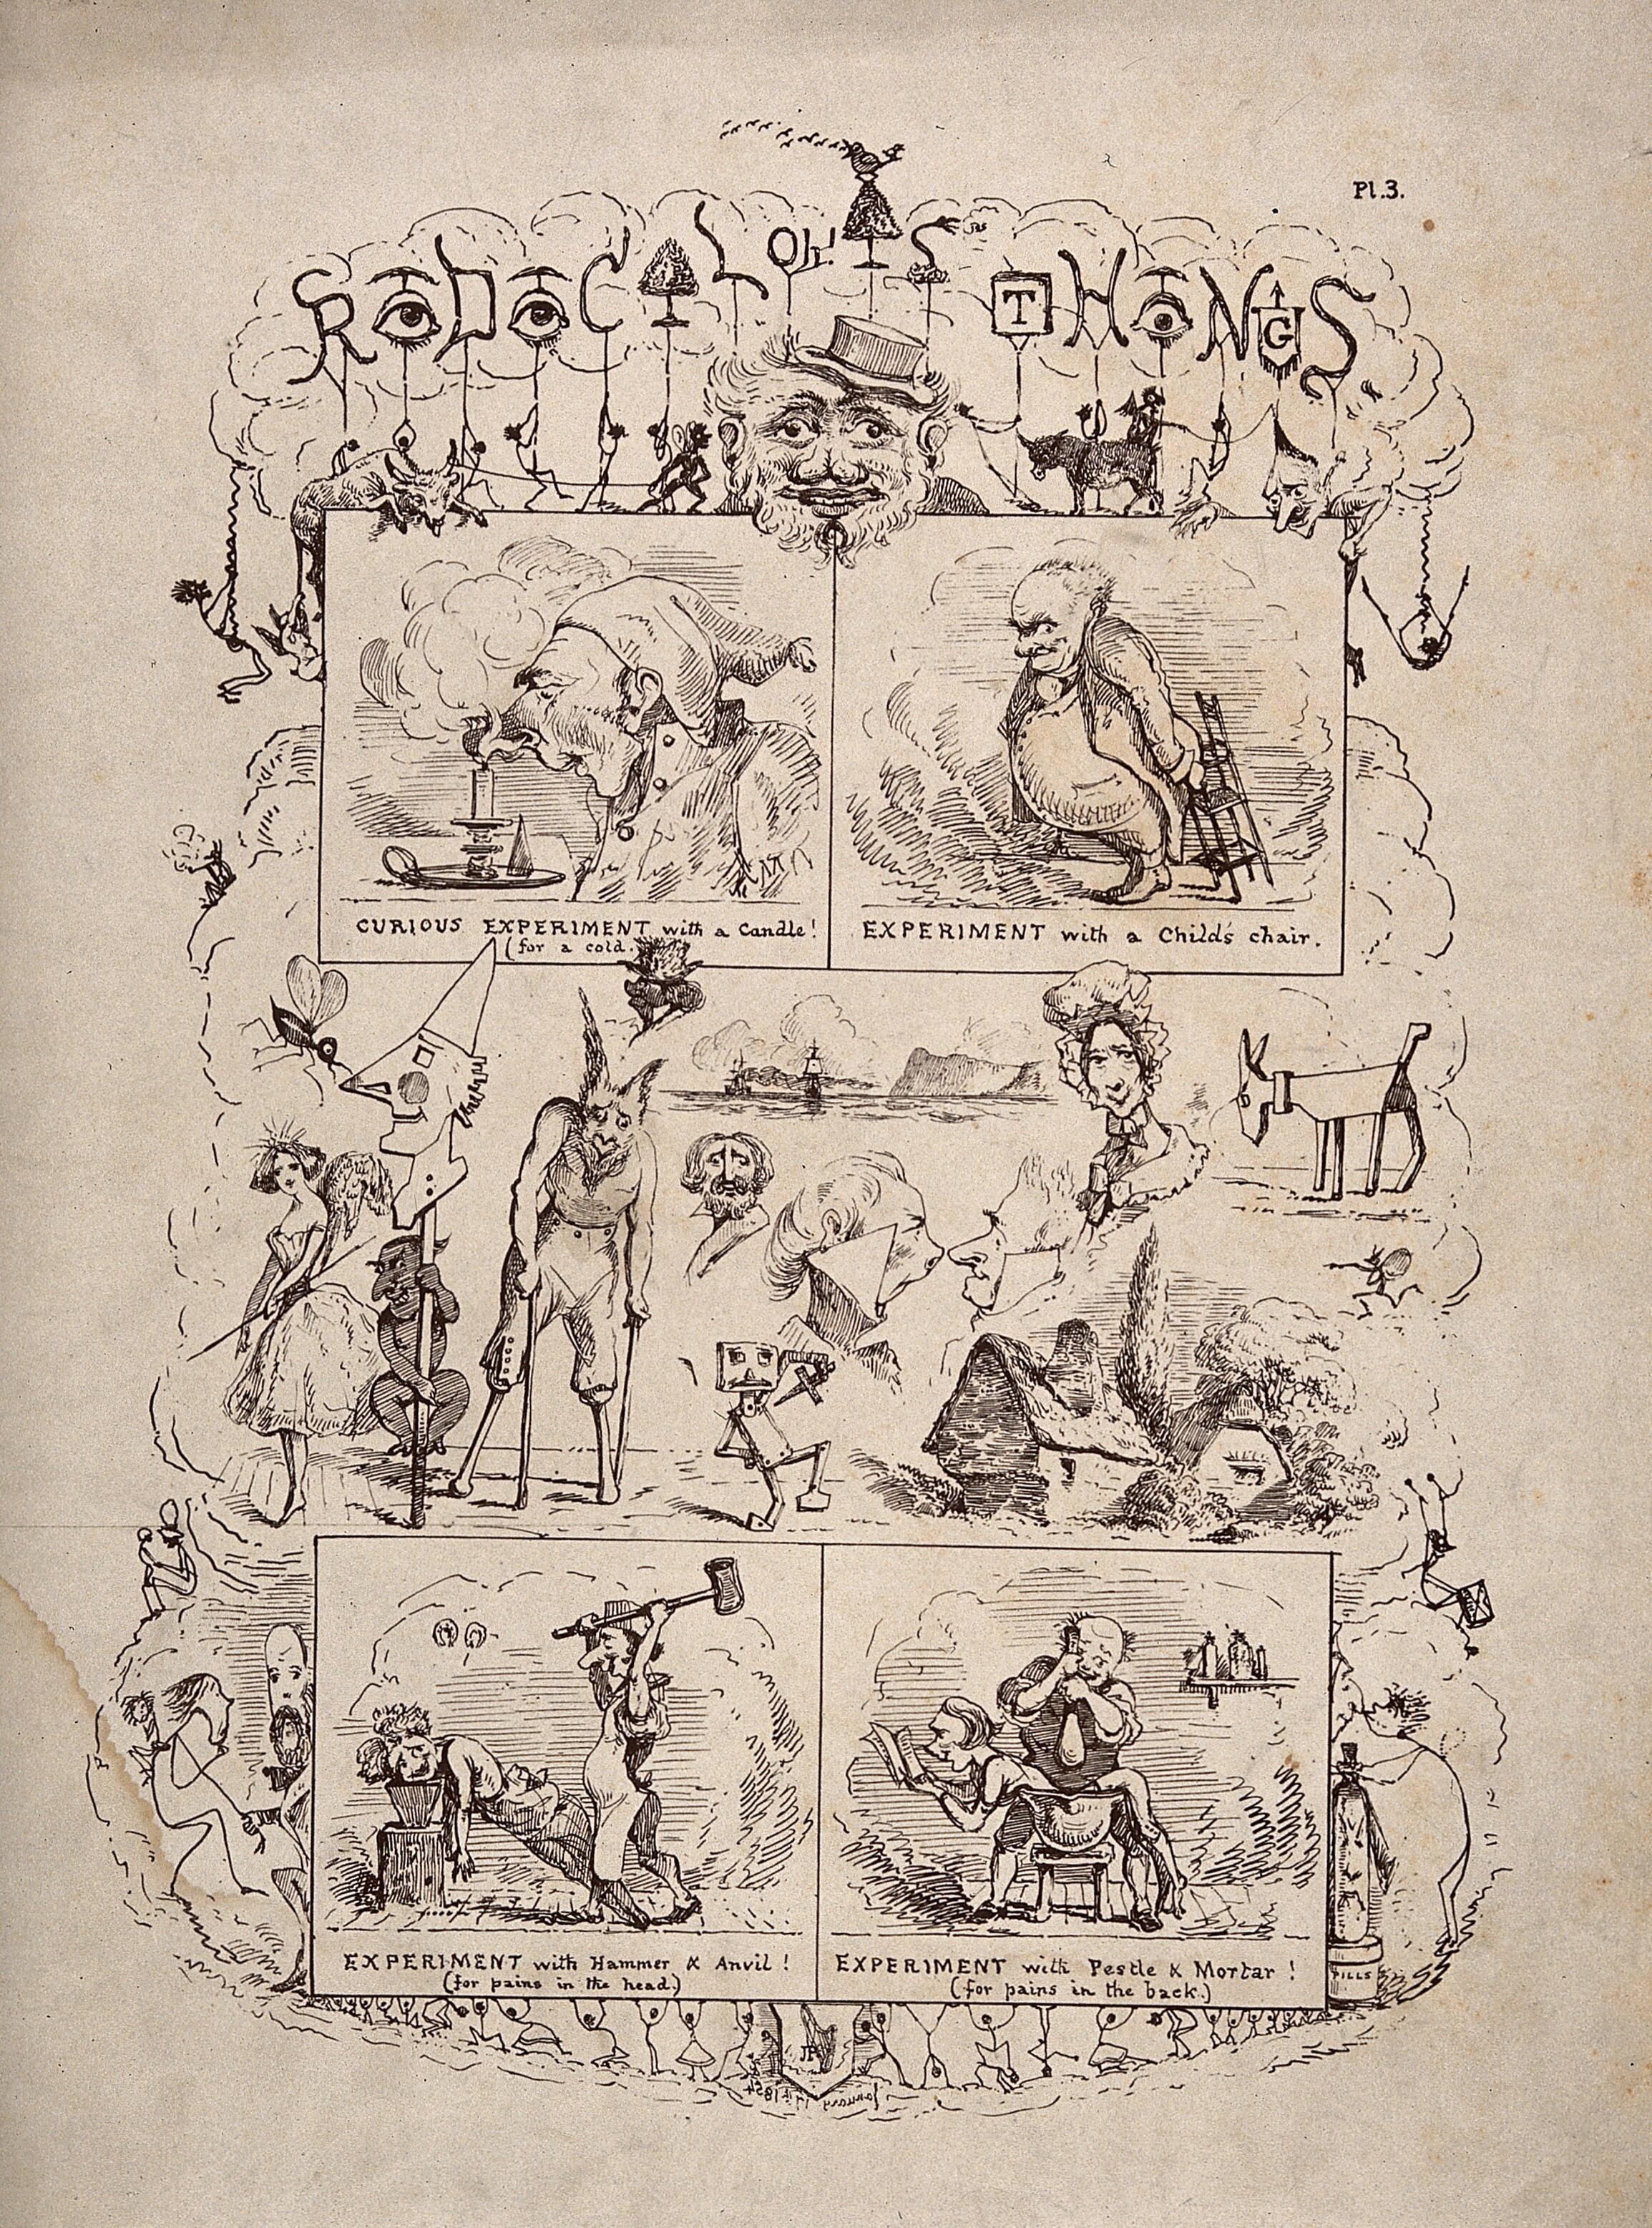 Pl.3.
R D C L Oh! S T H N G S
CURIOUS EXPERIMENT with a Candle!
(for a cold.
EXPERIMENT with a Child's chair.
EXPERIMENT with Hammer & Anvil!
(for pains in the head.)
EXPERIMENT with Pestle & Mortar!
(for pains in the back.)
PILLS
January 1854